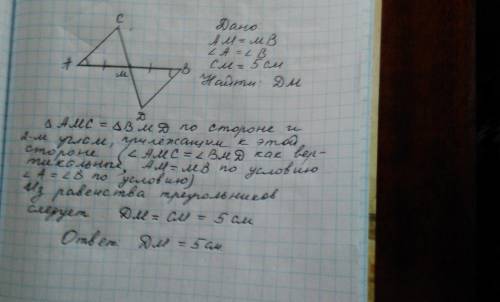 C
A
M
B
D
Дано
AM = MB
∠A = ∠B
CM = 5 см
Найти: DM
△AMC = △BMD по стороне и
2-м углам, прилежащим к этой
стороне (∠AMC = ∠BMD как вер-
тикальные, AM = MB по условию
∠A = ∠B по условию)
Из равенства треугольников
следует DM = CM = 5 см
Ответ DM = 5 см